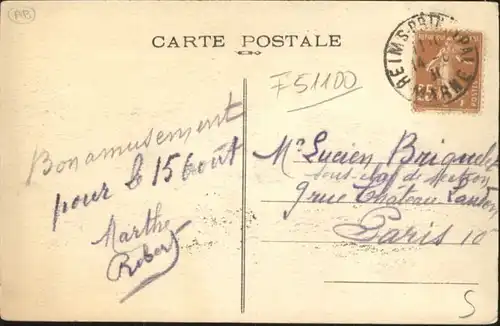 AB
CARTE POSTALE
REIMS
MARNE
25
F51100
Bon amusement
pour le 15 Août
Marthe
Robert
Mr Lucien
sous-chef de
9 rue Château Landon
Paris 10e
S